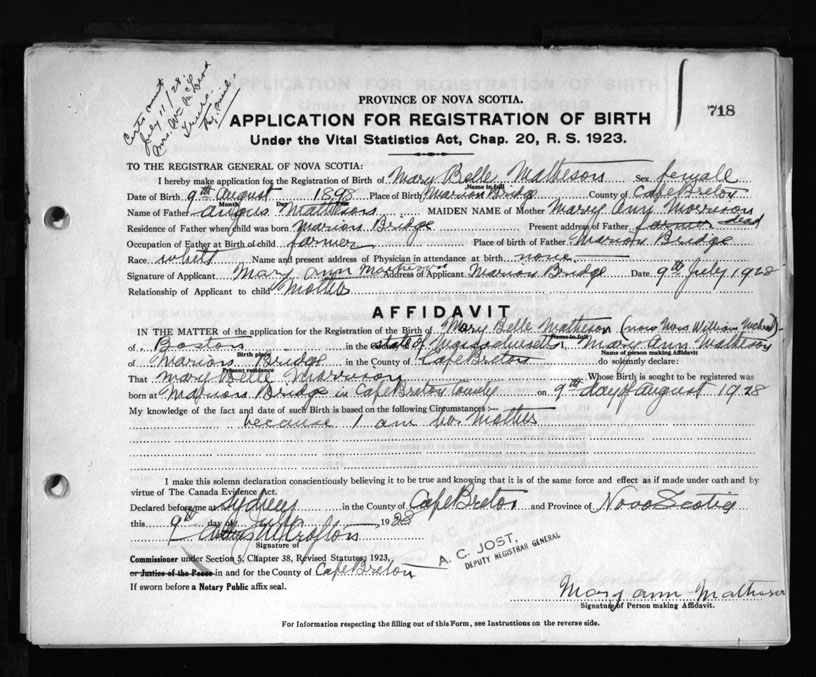 Certs. mait
July 11/28
Mrs. Wm Mc
PROVINCE OF NOVA SCOTIA.
718
APPLICATION FOR REGISTRATION OF BIRTH
Under the Vital Statistics Act, Chap. 20, R. S. 1923.
TO THE REGISTRAR GENERAL OF NOVA SCOTIA:
I hereby make application for the Registration of Birth of Mary Belle Matheson Sex female
Name in full
Date of Birth 9th August 1898 Place of Birth Marion Bridge County of Cape Breton
Month Day
Name of Father Angus Matheson MAIDEN NAME of Mother Mary Ann Morrison
Residence of Father when child was born Marion Bridge Present address of Father farmer dead
Occupation of Father at Birth of child farmer Place of birth of Father Marion Bridge
Race whett Name and present address of Physician in attendance at birth none
Signature of Applicant Mary Ann Matheson Address of Applicant Marion Bridge Date 9th July 1928
Relationship of Applicant to child Mother
AFFIDAVIT
IN THE MATTER of the application for the Registration of the Birth of Mary Belle Matheson (now Mrs William
Name in full
of Boston in the state of Massachusetts Mary Ann Matheson
Birth place Name of person making Affidavit
of Marion Bridge in the County of Cape Breton do solemnly declare:
Present residence
That Mary Belle Morrison Whose Birth is sought to be registered was
born at Marion Bridge in Cape Breton County on 9th day of August 1928
My knowledge of the fact and date of such Birth is based on the following Circumstances:—
because I am her mother
I make this solemn declaration conscientiously believing it to be true and knowing that it is of the same force and effect as if made under oath and by
virtue of The Canada Evidence Act.
Declared before me at Sydney in the County of Cape Breton and Province of Nova Scotia
this 9th day of July 1928
Signature of
A. C. JOST,
DEPUTY REGISTRAR GENERAL
Commissioner under Section 5, Chapter 38, Revised Statutes, 1923,
or Justice of the Peace in and for the County of Cape Breton
If sworn before a Notary Public affix seal.
Mary Ann Matheson
Signature of Person making Affidavit.
For Information respecting the filling out of this Form, see Instructions on the reverse side.